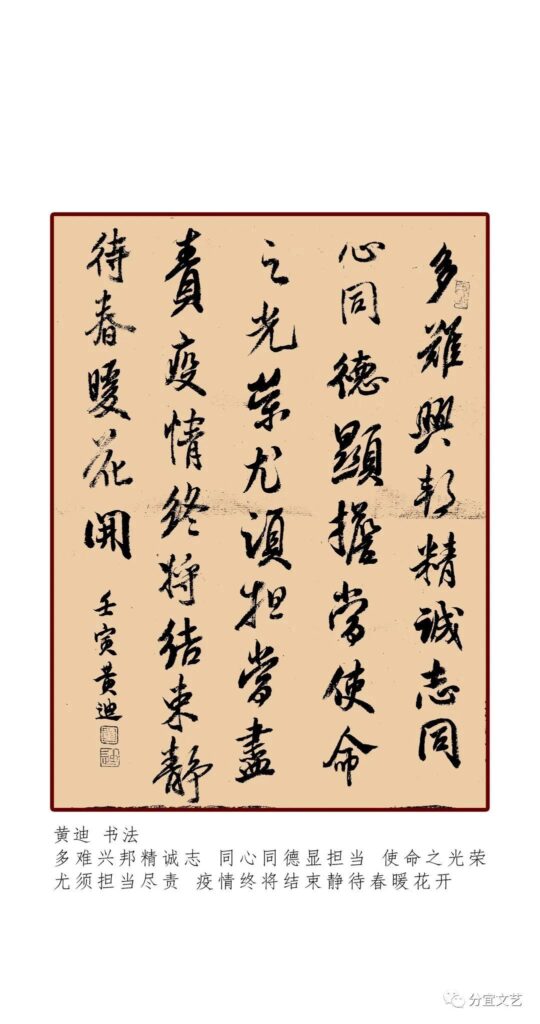 多難興邦精誠志同
心同德顯擔當使命
之光榮尤須担當盡
責疫情终将结束静
待春暖花開
壬寅黄迪
黄迪 书法
多难兴邦精诚志 同心同德显担当 使命之光荣
尤须担当尽责 疫情终将结束静待春暖花开
分宜文艺